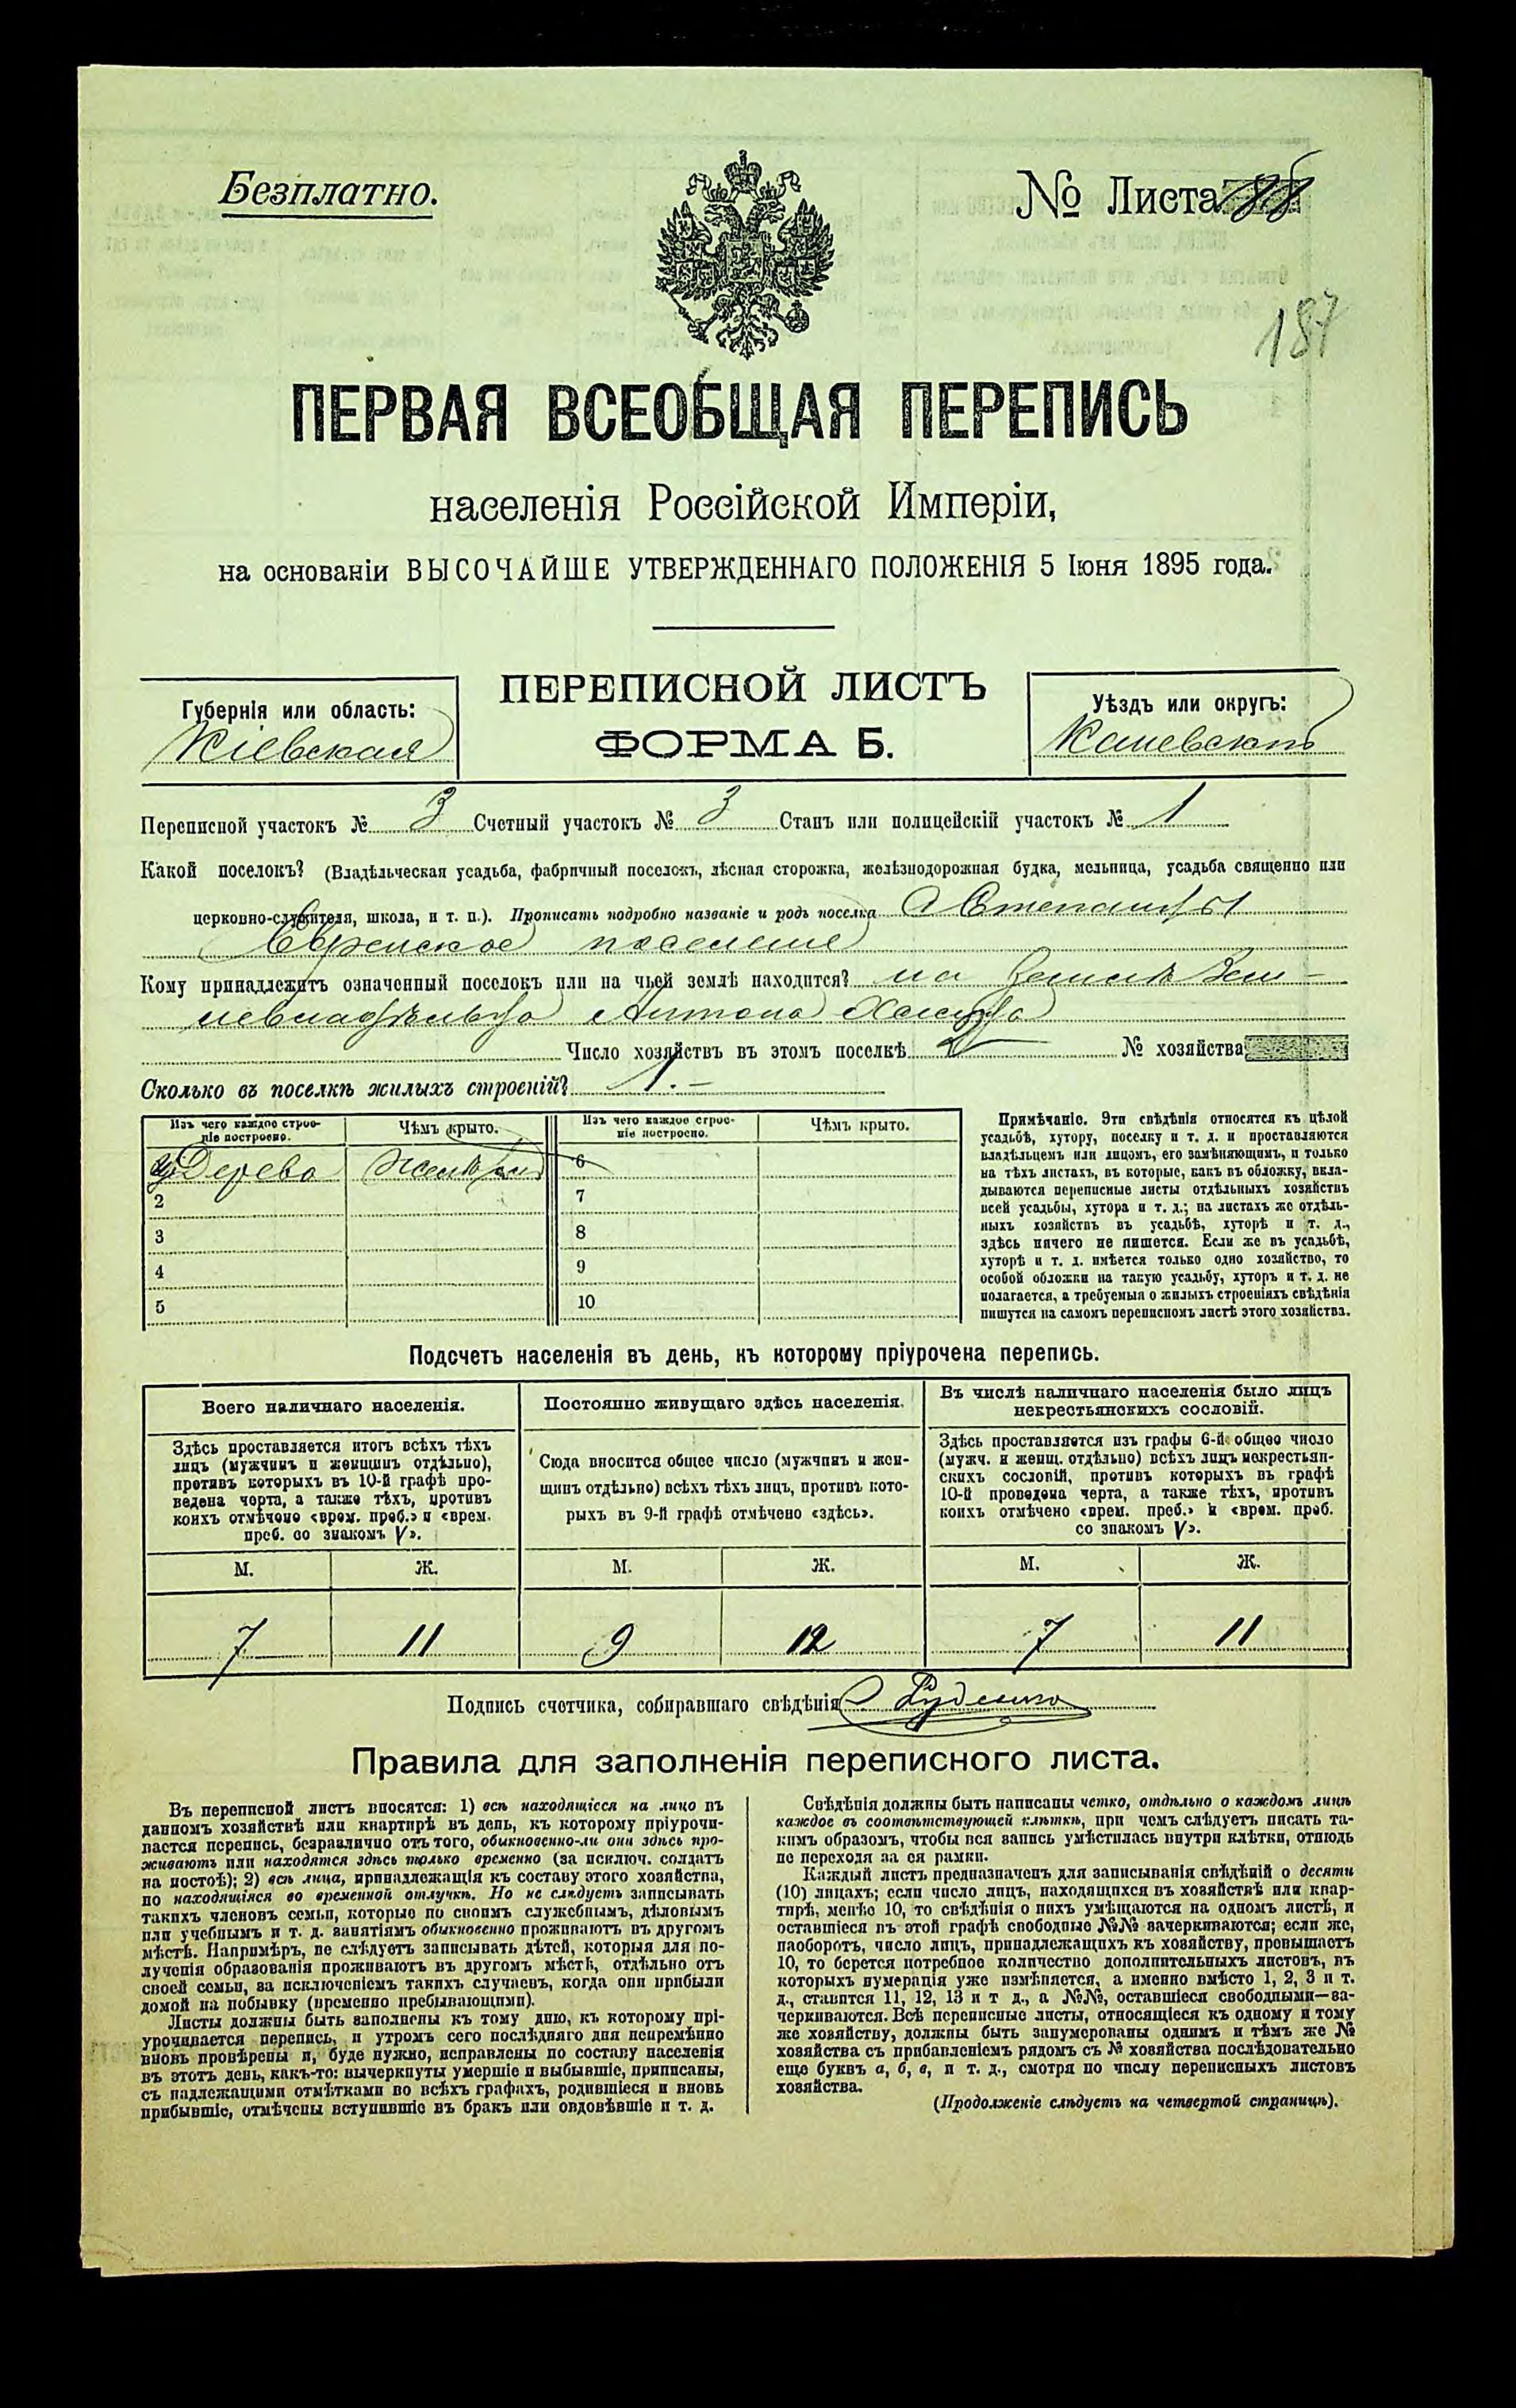 Безплатно.
№ Листа 88
187
ПЕРВАЯ ВСЕОБЩАЯ ПЕРЕПИСЬ
населенія Россійской Имперіи,
на основаніи ВЫСОЧАЙШЕ УТВЕРЖДЕННАГО ПОЛОЖЕНІЯ 5 Іюня 1895 года.
ПЕРЕПИСНОЙ ЛИСТЪ
ФОРМА Б.
Губернія или область:
Кіевская
Уѣздъ или округъ:
Каневскій
Переписной участокъ № 3 Счетный участокъ № 3 Станъ или полицейскій участокъ № 1
Какой поселокъ? (Владѣльческая усадьба, фабричный поселокъ, лѣсная сторожка, желѣзнодорожная будка, мельница, усадьба священно или
церковно-служителя, школа, и т. п.). Прописать подробно названіе и родъ поселка С Степанцы
Еврейское поселение
Кому принадлежитъ означенный поселокъ или на чьей землѣ находится? на Землѣ Зем-
левладѣльца Антона
Число хозяйствъ въ этомъ поселкѣ 2 № хозяйства
Сколько въ поселкѣ жилыхъ строеній? 1.-
Изъ чего каждое строе-
ніе построено.
Чѣмъ крыто.
Изъ чего каждое строе-
ніе построено.
Чѣмъ крыто.
Дерева
6
2
7
3
8
4
9
5
10
Примѣчаніе. Эти свѣдѣнія относятся къ цѣлой
усадьбѣ, хутору, поселку и т. д. и проставляются
владѣльцемъ или лицомъ, его замѣняющимъ, и только
на тѣхъ листахъ, въ которые, какъ въ обложку, вкла-
дываются переписные листы отдѣльныхъ хозяйствъ
всей усадьбы, хутора и т. д.; на листахъ же отдѣль-
ныхъ хозяйствъ въ усадьбѣ, хуторѣ и т. д.,
здѣсь ничего не пишется. Если же въ усадьбѣ,
хуторѣ и т. д. имѣется только одно хозяйство, то
особой обложки на такую усадьбу, хуторъ и т. д. не
полагается, а требуемыя о жилыхъ строеніяхъ свѣдѣнія
пишутся на самомъ переписномъ листѣ этого хозяйства.
Подсчетъ населенія въ день, къ которому пріурочена перепись.
Всего наличнаго населенія.
Постоянно живущаго здѣсь населенія.
Въ числѣ наличнаго населенія было лицъ
некрестьянскихъ сословій.
Здѣсь проставляется итогъ всѣхъ тѣхъ
лицъ (мужчинъ и женщинъ отдѣльно),
противъ которыхъ въ 10-й графѣ про-
ведена черта, а также тѣхъ, противъ
коихъ отмѣчено «врем. преб.» и «врем.
преб. со знакомъ V».
Сюда вносится общее число (мужчинъ и жен-
щинъ отдѣльно) всѣхъ тѣхъ лицъ, противъ кото-
рыхъ въ 9-й графѣ отмѣчено «здѣсь».
Здѣсь проставляется изъ графы 6-й общее число
(мужч. и женщ. отдѣльно) всѣхъ лицъ некрестьян-
скихъ сословій, противъ которыхъ въ графѣ
10-й проведена черта, а также тѣхъ, противъ
коихъ отмѣчено «врем. преб.» и «врем. преб.
со знакомъ V».
М. Ж. М. Ж. М. Ж.
7 11 9 12 7 11
Подпись счетчика, собиравшаго свѣдѣнія Руденко
Правила для заполненія переписного листа.
Въ переписной листъ вносятся: 1) всѣ находящіеся на лицо въ
данномъ хозяйствѣ или квартирѣ въ день, къ которому пріурочи-
вается перепись, безразлично отъ того, обыкновенно-ли они здѣсь про-
живаютъ или находятся здѣсь только временно (за исключ. солдатъ
на постоѣ); 2) всѣ лица, принадлежащія къ составу этого хозяйства,
но находящіяся во временной отлучкѣ. Но не слѣдуетъ записывать
такихъ членовъ семьи, которые по своимъ служебнымъ, дѣловымъ
или учебнымъ и т. д. занятіямъ обыкновенно проживаютъ въ другомъ
мѣстѣ. Напримѣръ, не слѣдуетъ записывать дѣтей, которыя для по-
лученія образованія проживаютъ въ другомъ мѣстѣ, отдѣльно отъ
своей семьи, за исключеніемъ такихъ случаевъ, когда они прибыли
домой на побывку (временно пребывающими).
Листы должны быть заполнены къ тому дню, къ которому прі-
урочивается перепись, и утромъ сего послѣдняго дня непремѣнно
вновь провѣрены и, буде нужно, исправлены по составу населенія
въ этотъ день, какъ-то: вычеркнуты умершіе и выбывшіе, приписаны,
съ надлежащими отмѣтками во всѣхъ графахъ, родившіеся и вновь
прибывшіе, отмѣчены вступившіе въ бракъ или овдовѣвшіе и т. д.
Свѣдѣнія должны быть написаны четко, отдѣльно о каждомъ лицѣ
каждое въ соотвѣтствующей клѣткѣ, при чемъ слѣдуетъ писать та-
кимъ образомъ, чтобы вся запись умѣстилась внутри клѣтки, отнюдь
не переходя за ея рамки.
Каждый листъ предназначенъ для записыванія свѣдѣній о десяти
(10) лицахъ; если число лицъ, находящихся въ хозяйствѣ или квар-
тирѣ, менѣе 10, то свѣдѣнія о нихъ умѣщаются на одномъ листѣ, и
оставшіеся въ этой графѣ свободные №№ зачеркиваются; если же,
наоборотъ, число лицъ, принадлежащихъ къ хозяйству, превышаетъ
10, то берется потребное количество дополнительныхъ листовъ, въ
которыхъ нумерація уже измѣняется, а именно вмѣсто 1, 2, 3 и т.
д., ставится 11, 12, 13 и т д., а №№, оставшіеся свободными—за-
черкиваются. Всѣ переписные листы, относящіеся къ одному и тому
же хозяйству, должны быть занумерованы однимъ и тѣмъ же №
хозяйства съ прибавленіемъ рядомъ съ № хозяйства послѣдовательно
еще буквъ а, б, в, и т. д., смотря по числу переписныхъ листовъ
хозяйства.
(Продолженіе слѣдуетъ на четвертой страницѣ).